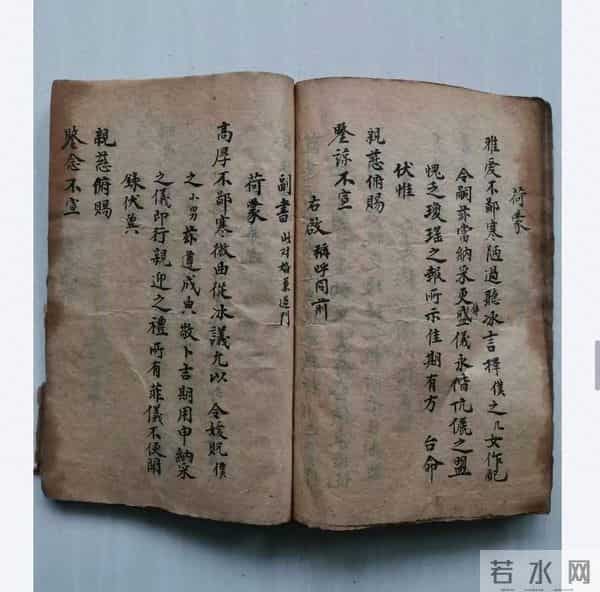 荷蒙
雅爱不鄙寒陋過聽冰言擇僕之几女作配
令嗣茲當納采更盛儀永偕伉儷之盟
愧乏瓊瑤之報所示佳期有方 台命
伏惟
親慈俯賜
鑒諒不宣
右啟 稱呼同前
副書
荷蒙
高厚不鄙寒微曲從冰議允以令媛貺僕
之小男茲遵成典敬卜吉期用申納采
之儀即行親迎之禮所有菲儀不便開
錄伏冀
親慈俯賜
鑒念不宣
若水网